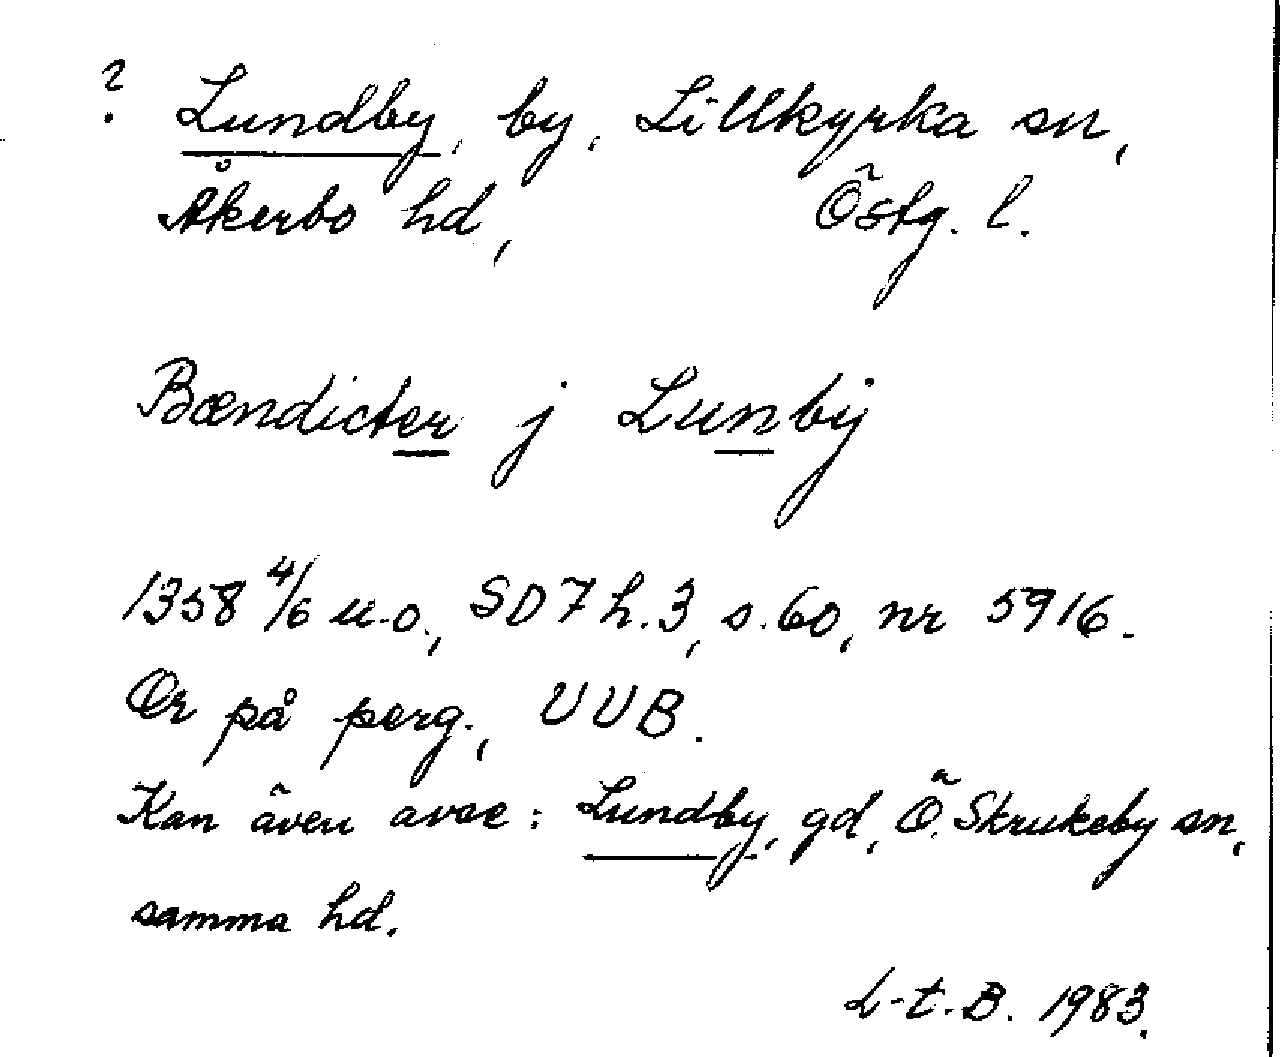 ? Lundby, by, Lillkyrka sn,
Åkerbo hd, Östg. l.
Bændicter j Lunbÿ
1358 4/6 u.o., SD 7 h.3, s.60, nr 5916.
Or på perg., UUB.
Kan även avse: Lundby, gd, Ö. Skrukeby sn,
samma hd.
L-t.B. 1983.